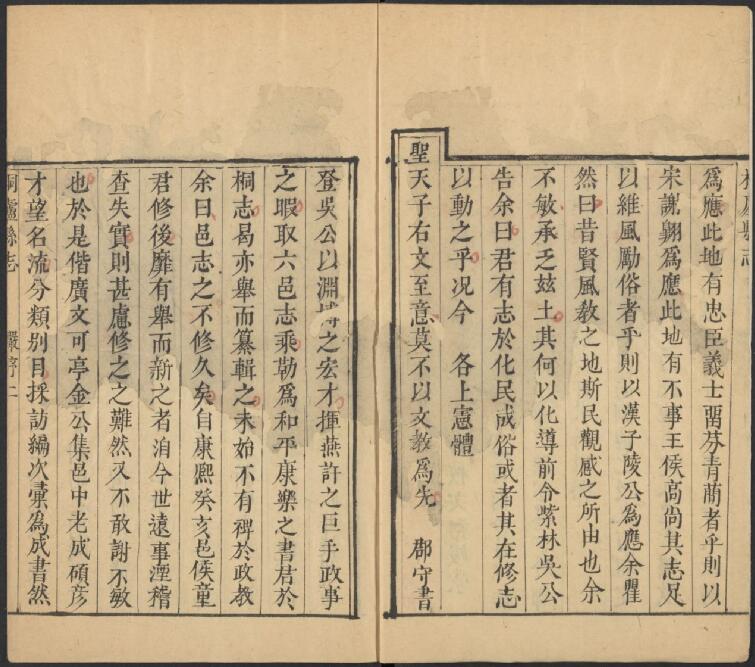 爲應此地有忠臣義士畱芬青蕳者乎則以
宋謝翺爲應此地有不事王侯高尚其志足
以維風勵俗者乎則以漢子陵公爲應余瞿
然曰昔賢風教之地斯民觀感之所由也余
不敏承乏玆土其何以化導前令紫林吳公
告余曰君有志於化民成俗或者其在修志
以動之乎况今　各上憲體
聖天子右文至意莫不以文教爲先　郡守書
登吳公以淵博之宏才揮燕許之巨手政事
之暇取六邑志乘勒爲和平康樂之書君於
桐志曷亦舉而纂輯之未始不有裨於政教
余曰邑志之不修久矣自康熙癸亥邑侯童
君修後靡有舉而新之者洎今世遠事湮稽
查失實則甚慮修之之難然又不敢謝不敏
也於是偕廣文可亭金公集邑中老成碩彦
才望名流分類別目採訪編次彙爲成書然
桐廬縣志　嚴序二